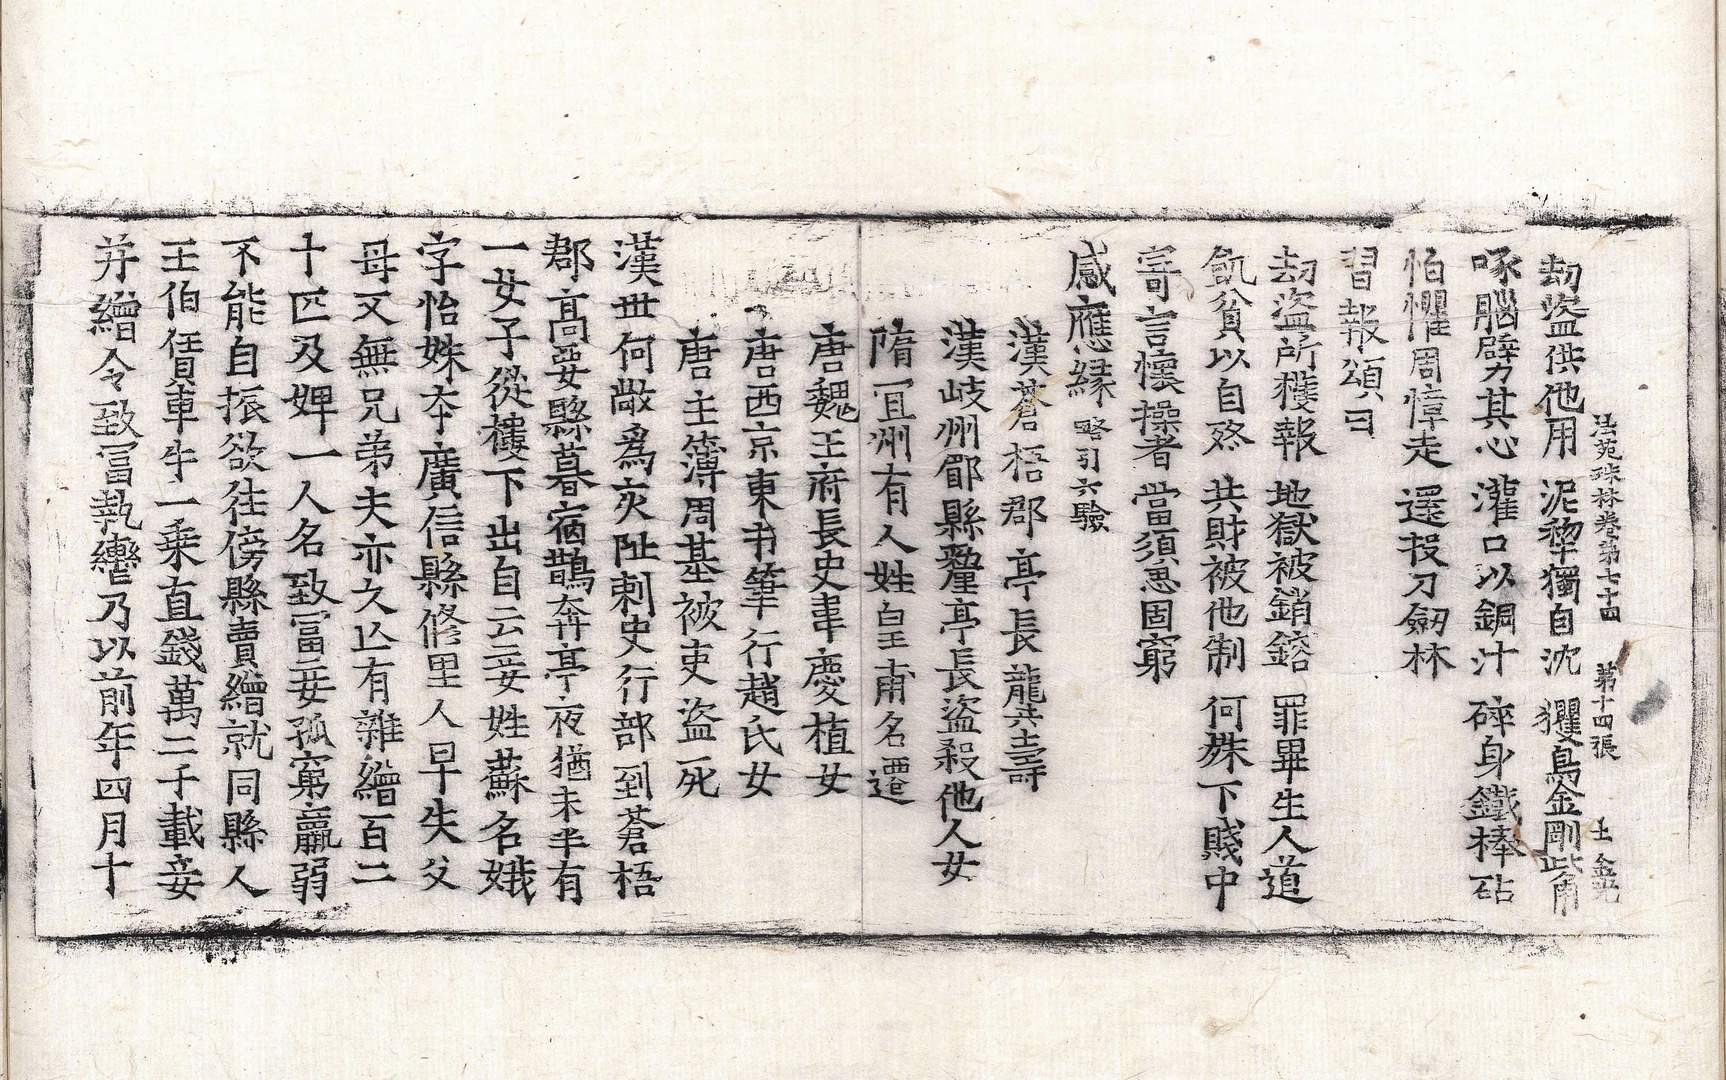 法苑珠林卷第七十四 第十四張 王 金光
劫盜供他用 泥犂獨自沈 玃鳥金剛觜角
啄腦劈其心 灌口以銅汁 碎身鐵棒砧
怕懼周慞走 還投刀劒林
習報頌曰
劫盜所穫報 地獄被銷鎔 罪畢生人道
飢貧以自終 共財被他制 何殊下賤中
寄言懷操者 當須慜固窮
感應緣 略引六驗
漢蒼梧郡亭長龍共士壽
漢岐州郿縣釐亭長盜殺他人女
隋冝州有人姓皇甫名遷
唐魏王府長史韋慶植女
唐西京東市筆行趙氏女
唐主簿周基被吏盜死
漢世何敞爲交阯刺史行部到蒼梧
郡高要縣暮宿鵲奔亭夜猶未半有
一女子從樓下出自云妾姓蘇名娥
字怡姝夲廣信縣修里人早失父
母又無兄弟夫亦久亡有雜繒百二
十匹及婢一人名致冨妾孤窮羸弱
不能自振欲往傍縣賣繒就同縣人
王伯賃車牛一乗直錢萬二千載妾
并繒令致冨執轡乃以前年四月十